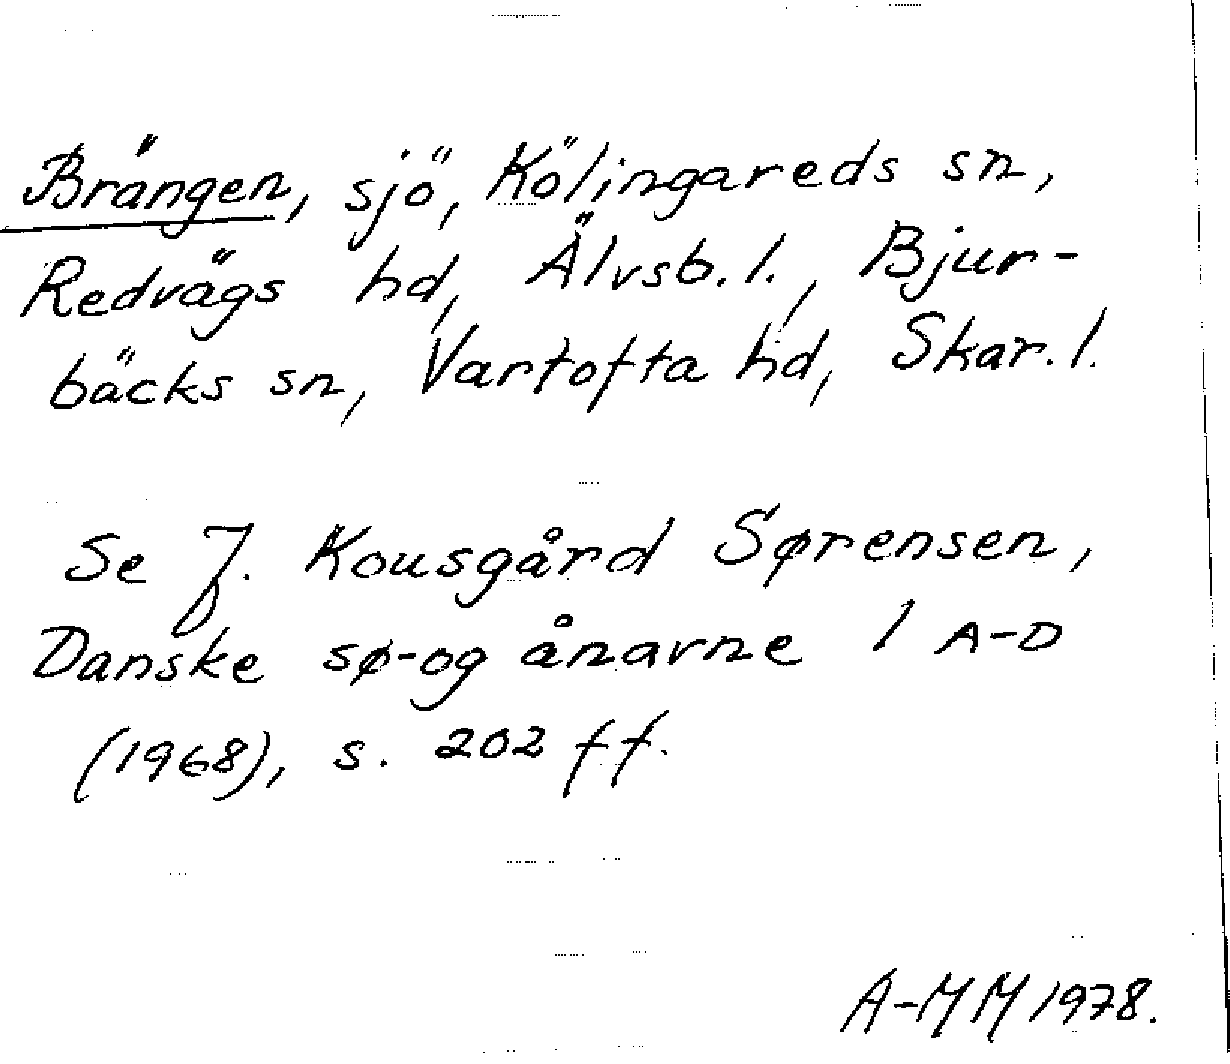 Brängen, sjö, Kölingareds sn,
Redvägs hd, Älvsb. l., Bjur-
bäcks sn, Vartofta hd, Skar. l.
Se J. Kousgård Sørensen,
Danske sø- og ånavne 1 A-D
(1968), s. 202 ff.
A-MM 1978.